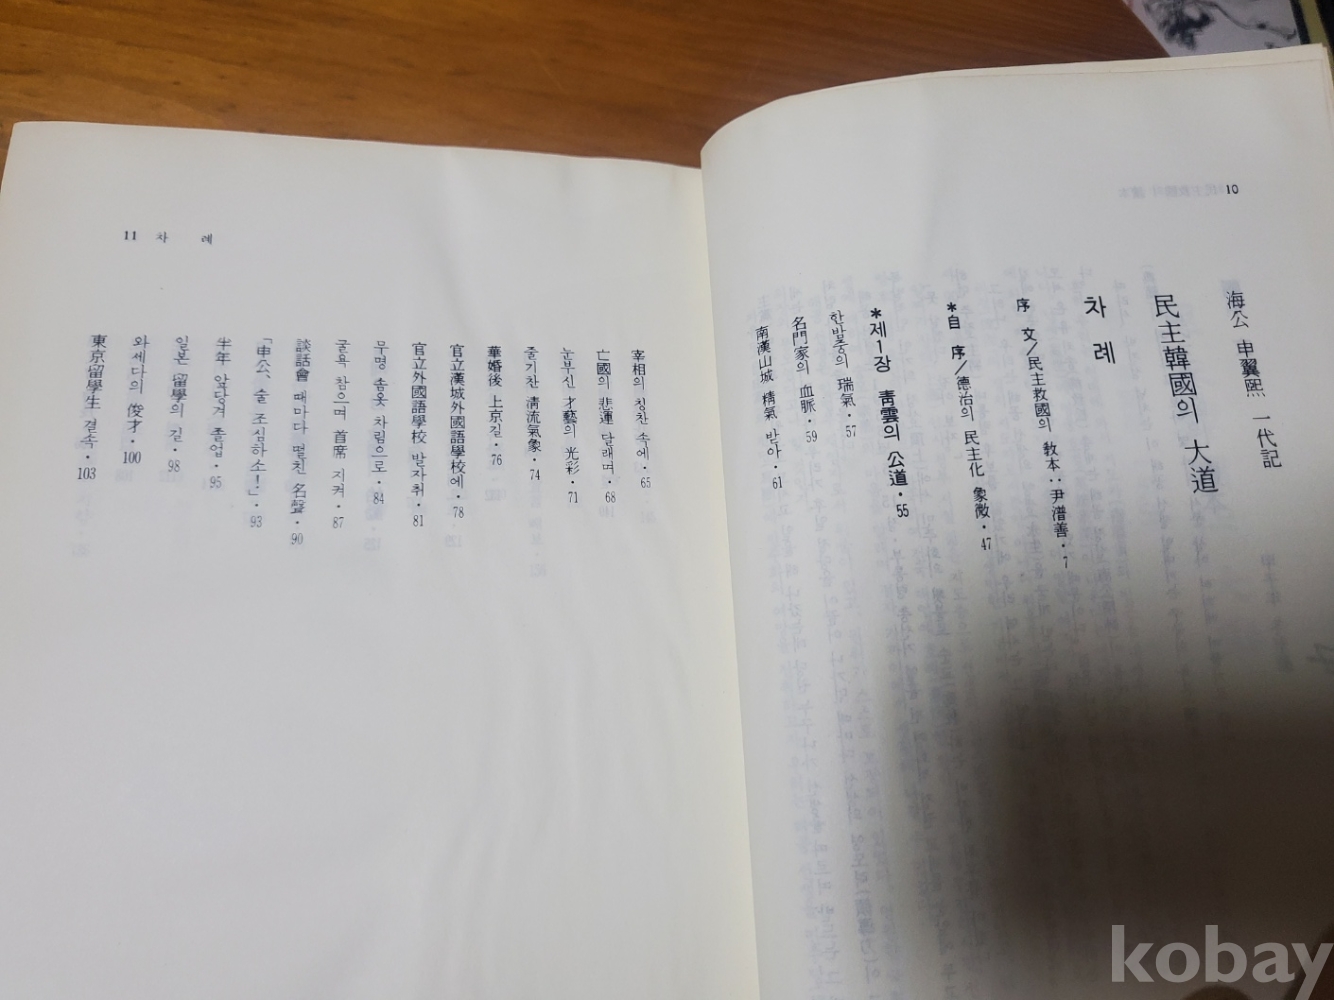 10
海公 申翼熙 一代記
民主韓國의 大道
차례
序 文／民主救國의 敎本：尹潽善・7
*自 序／德治의 民主化 象徵・47
*제1장 靑雲의 公道・55
한밝둥의 瑞氣・57
名門家의 血脈・59
南漢山城 精氣 받아・61
11 차 례
宰相의 칭찬 속에・65
亡國의 悲運 달래며・68
눈부신 才藝의 光彩・71
줄기찬 淸流氣象・74
華婚後 上京길・76
官立漢城外國語學校에・78
官立外國語學校 발자취・81
무명 솜옷 차림으로・84
굴욕 참으며 首席 지켜・87
談話會 때마다 떨친 名聲・90
「申公、술 조심하소！」・93
半年 앞당겨 졸업・95
일본 留學의 길・98
와세다의 俊才・100
東京留學生 결속・103
kobay